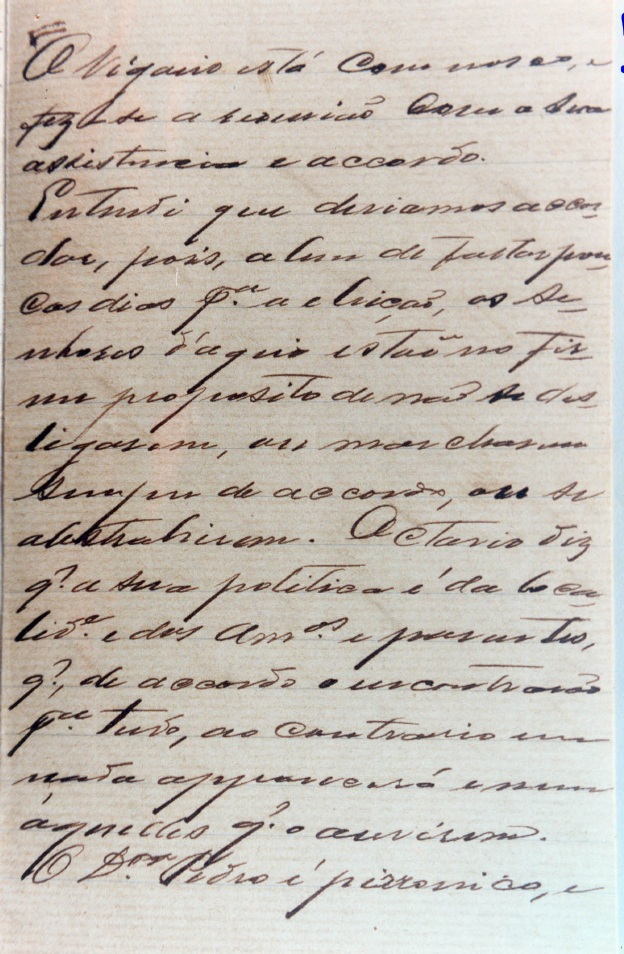 O Vigario está com nosco, e
fez-se a reunião com a sua
assistencia e accordo.
Entendi que deviamos accor-
dar, pois, alem de faltar pou-
cos dias p.ª a eleição, os Se-
nhores d'aqui estão no fir-
me proposito de não se des-
ligarem, ou marcharem
sempre de accordo, ou se
abstrahirem. Octavio diz
q.' a sua politica é da loca-
lid.e e dos Am.os e parentes,
q.', de accordo o encontrarão
p.ª tudo, ao contrario em
nada apparecerá e nem
áquelles q.' o ouvirem.
O D.or Pedro é pirronico, e